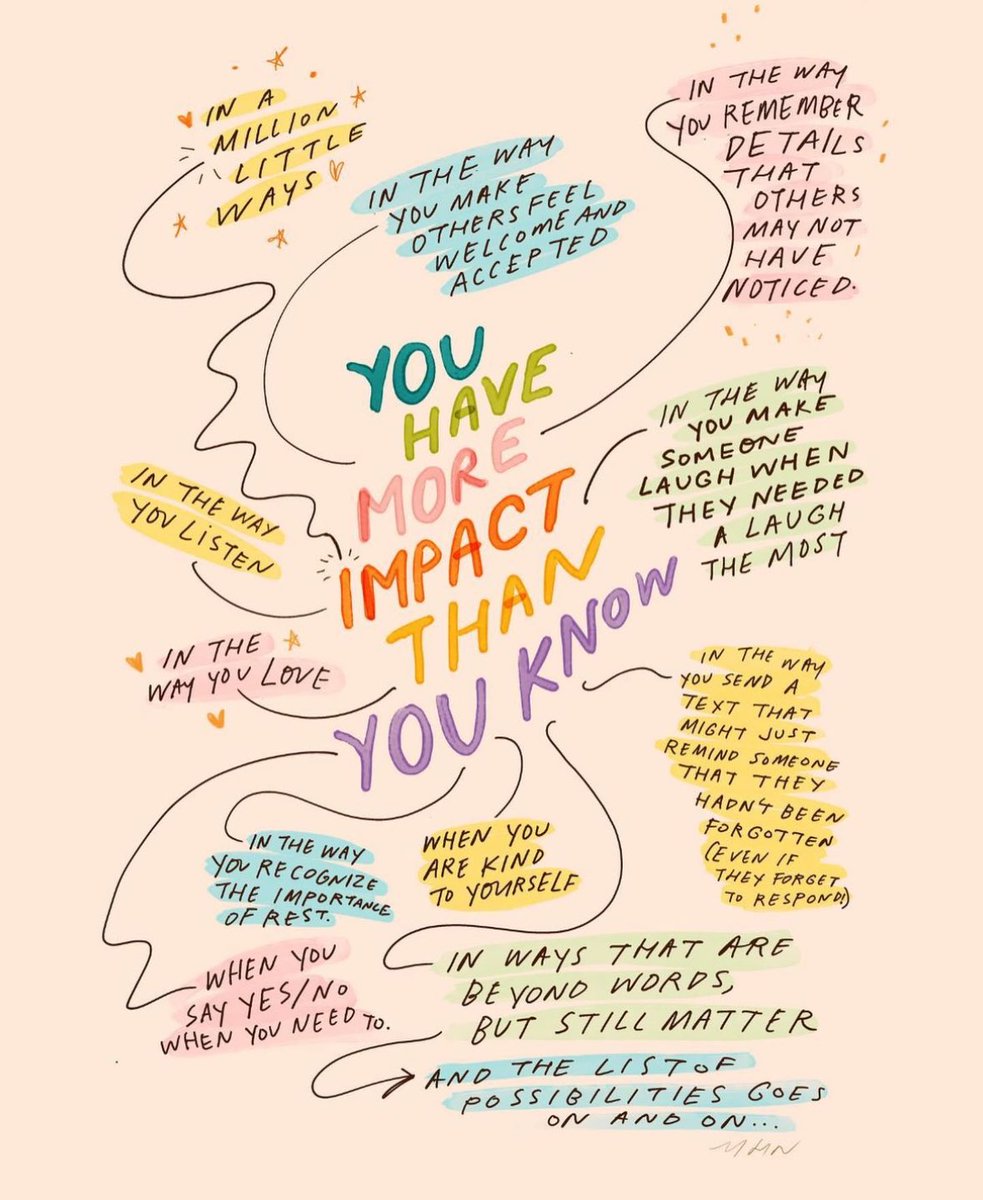 IN A
MILLION
LITTLE
WAYS
IN THE WAY
YOU MAKE
OTHERS FEEL
WELCOME AND
ACCEPTED
IN THE WAY
YOU REMEMBER
DETAILS
THAT
OTHERS
MAY NOT
HAVE
NOTICED.
YOU
HAVE
MORE
IMPACT
THAN
YOU KNOW
IN THE WAY
YOU MAKE
SOMEONE
LAUGH WHEN
THEY NEEDED
A LAUGH
THE MOST
IN THE WAY
YOU LISTEN
IN THE
WAY YOU LOVE
IN THE WAY
YOU SEND A
TEXT THAT
MIGHT JUST
REMIND SOMEONE
THAT THEY
HADN'T BEEN
FORGOTTEN
(EVEN IF
THEY FORGET
TO RESPOND!)
IN THE WAY
YOU RECOGNIZE
THE IMPORTANCE
OF REST.
WHEN YOU
ARE KIND
TO YOURSELF
WHEN YOU
SAY YES/NO
WHEN YOU NEED TO.
IN WAYS THAT ARE
BEYOND WORDS,
BUT STILL MATTER
AND THE LIST OF
POSSIBILITIES GOES
ON AND ON...
MHN